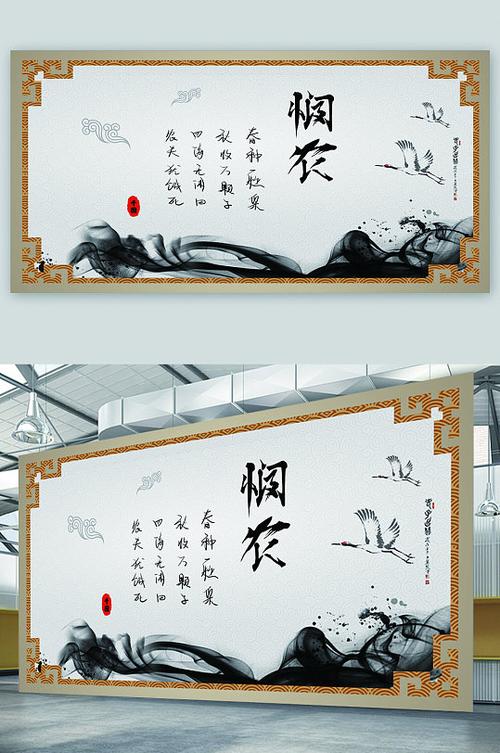 悯农
春种一粒粟
秋收万颗子
四海无闲田
农夫犹饿死
悯农
春种一粒粟
秋收万颗子
四海无闲田
农夫犹饿死